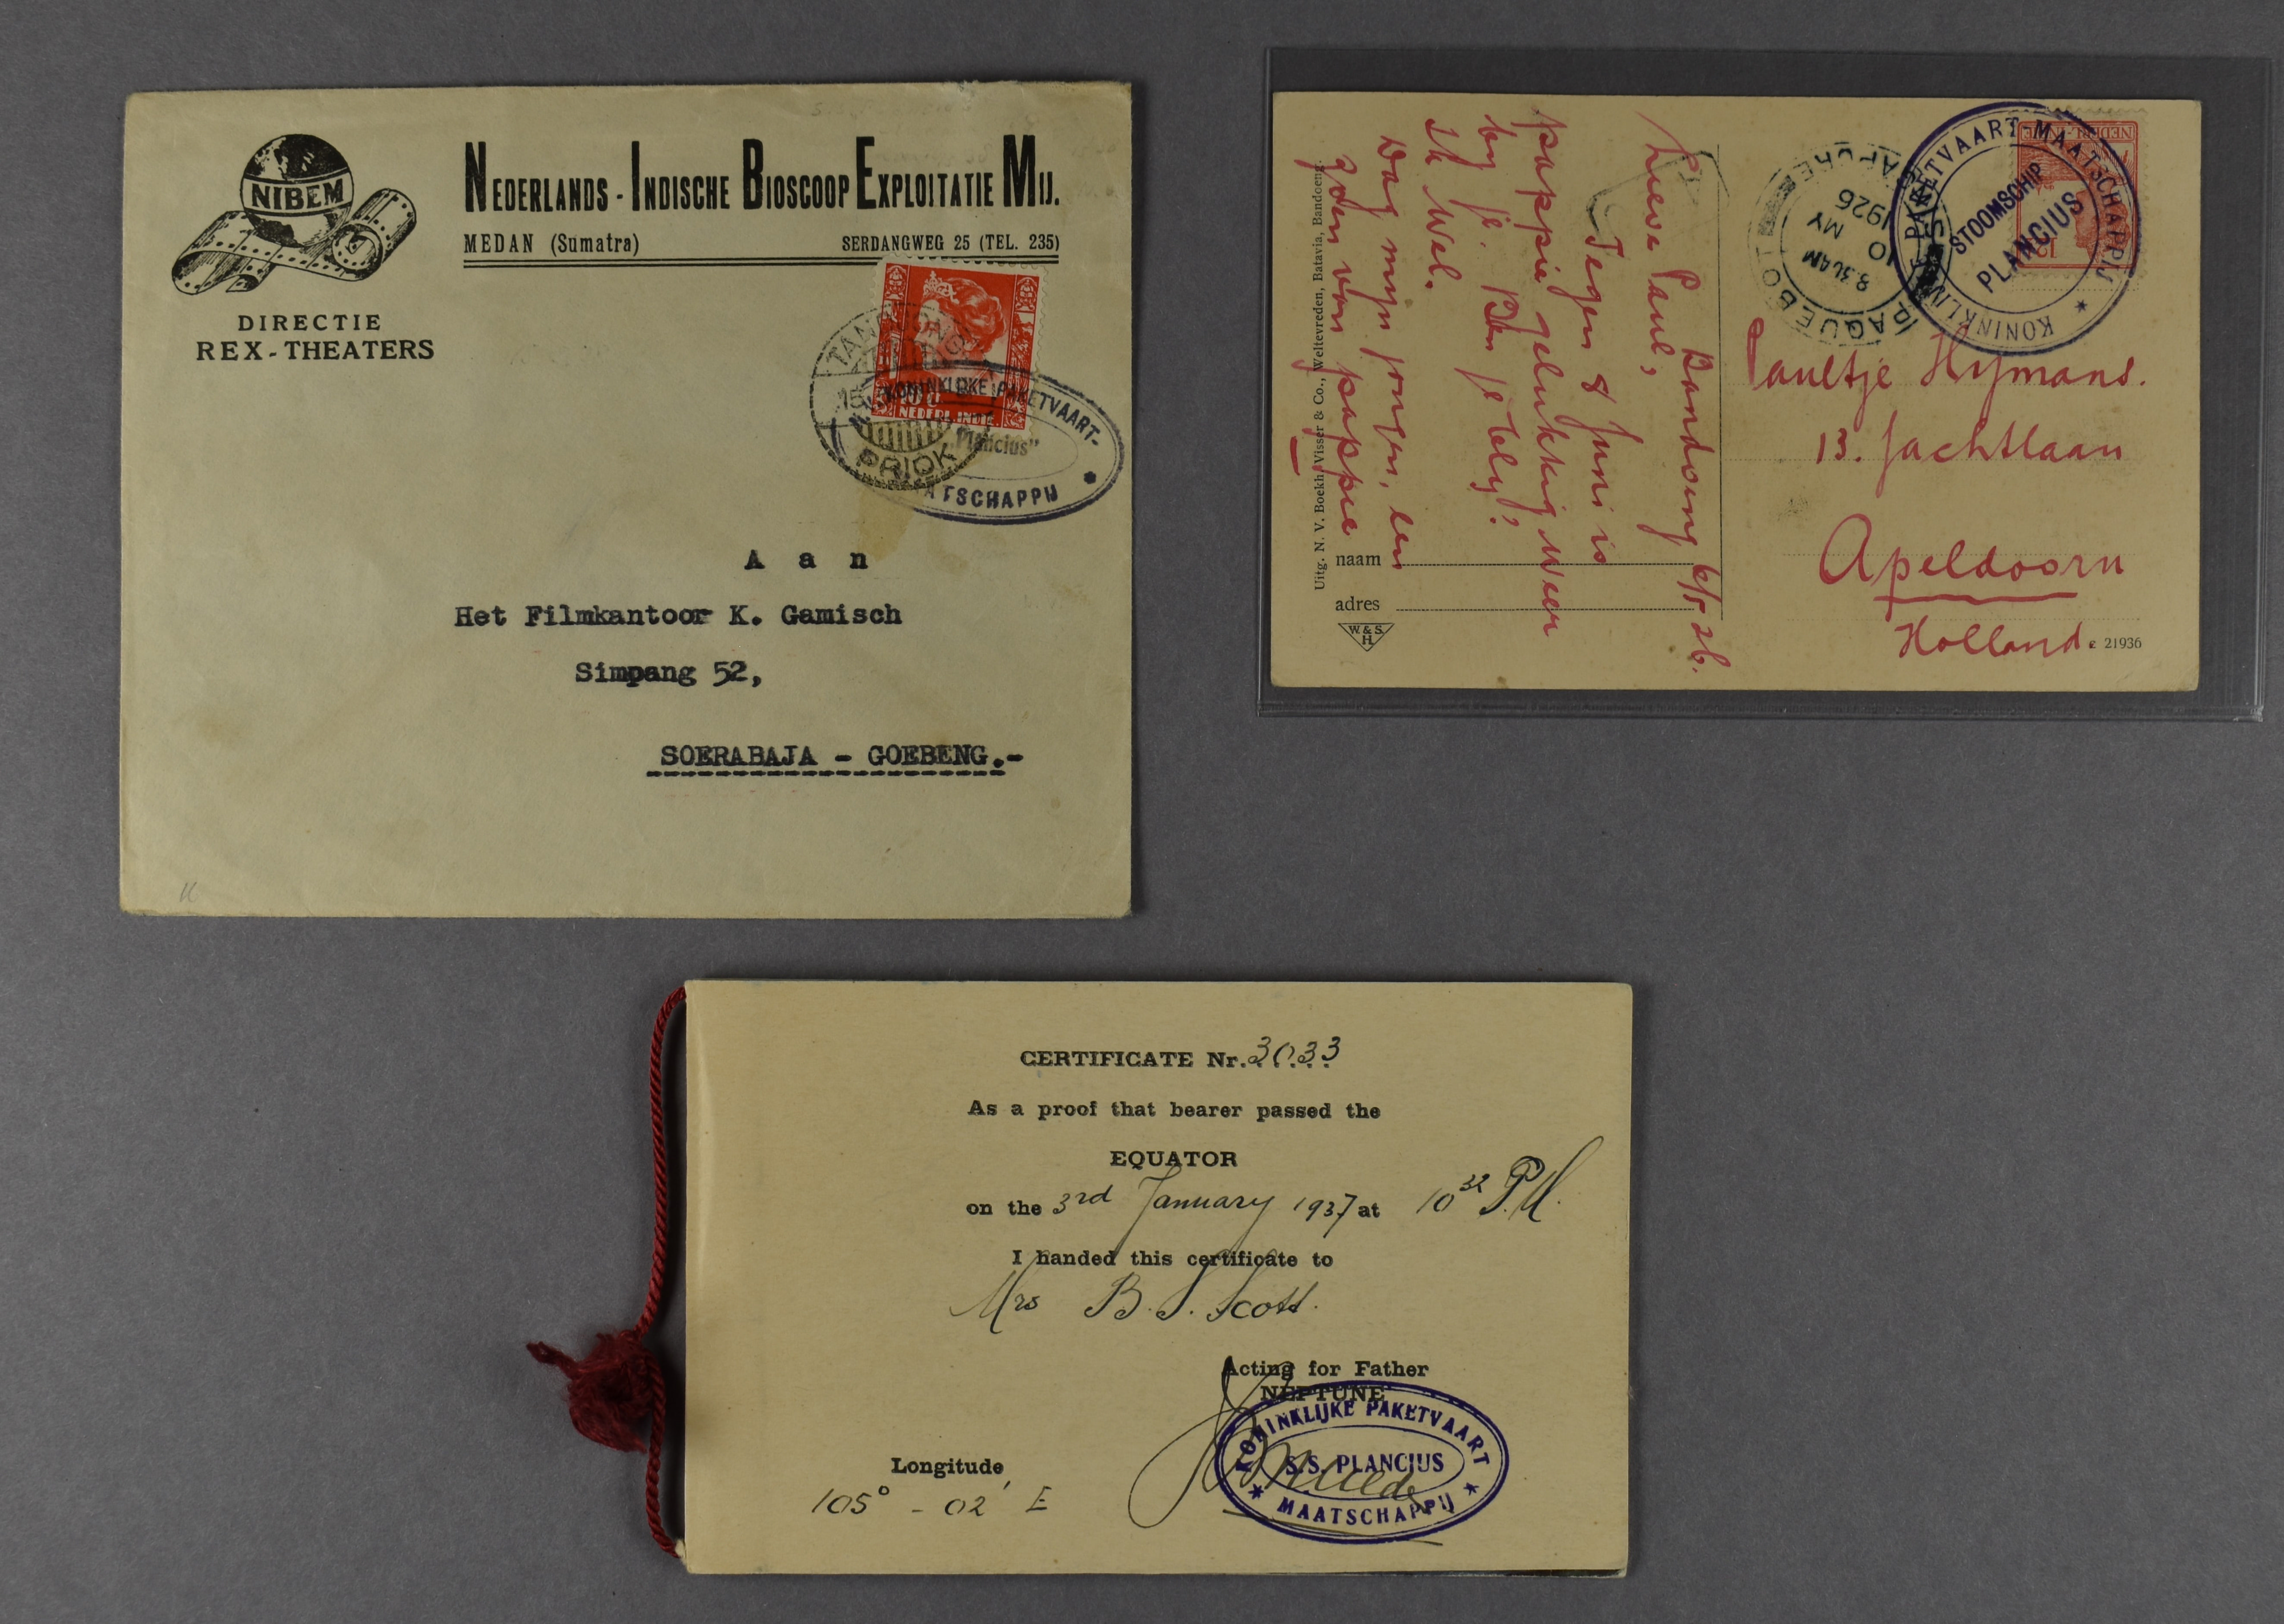 NIBEM
NEDERLANDS-INDISCHE BIOSCOOP EXPLOITATIE MIJ.
MEDAN (Sumatra) SERDANGWEG 25 (TEL. 235)
DIRECTIE
REX-THEATERS
10 CT
NEDERL.INDIE
PRIOK
KONINKLIJKE PAKETVAART-
"Plancius"
MAATSCHAPPIJ
A a n
Het Filmkantoor K. Gamisch
Simpang 52,
SOERABAJA - GOEBENG.-
Bandoeng 6/5 26.
Lieve Paul,
Tegen 8 Juni is
pappie gelukkig weer
by je. Ben je bly?
Ik wel.
Dag myn jongen, een
zoen van pappie
Uitg. N. V. Boekh. Visser & Co., Weltevreden, Batavia, Bandoeng.
naam
adres
W. & S.
H.
PAQUEBOT
8.30AM
10 MY
1926
NEDERL.-INDIE
KONINKLIJKE PAKETVAART MAATSCHAPPIJ
STOOMSCHIP
PLANCIUS
Paultje Hymans.
13. Jachtlaan
Apeldoorn
Holland.
e 21936
CERTIFICATE Nr. 3033
As a proof that bearer passed the
EQUATOR
on the 3rd January 1937 at 10 32 P.M.
I handed this certificate to
Mrs B. S. Scott.
Acting for Father
NEPTUNE
KONINKLIJKE PAKETVAART
S.S. PLANCIUS
MAATSCHAPPIJ
Longitude
105° - 02' E